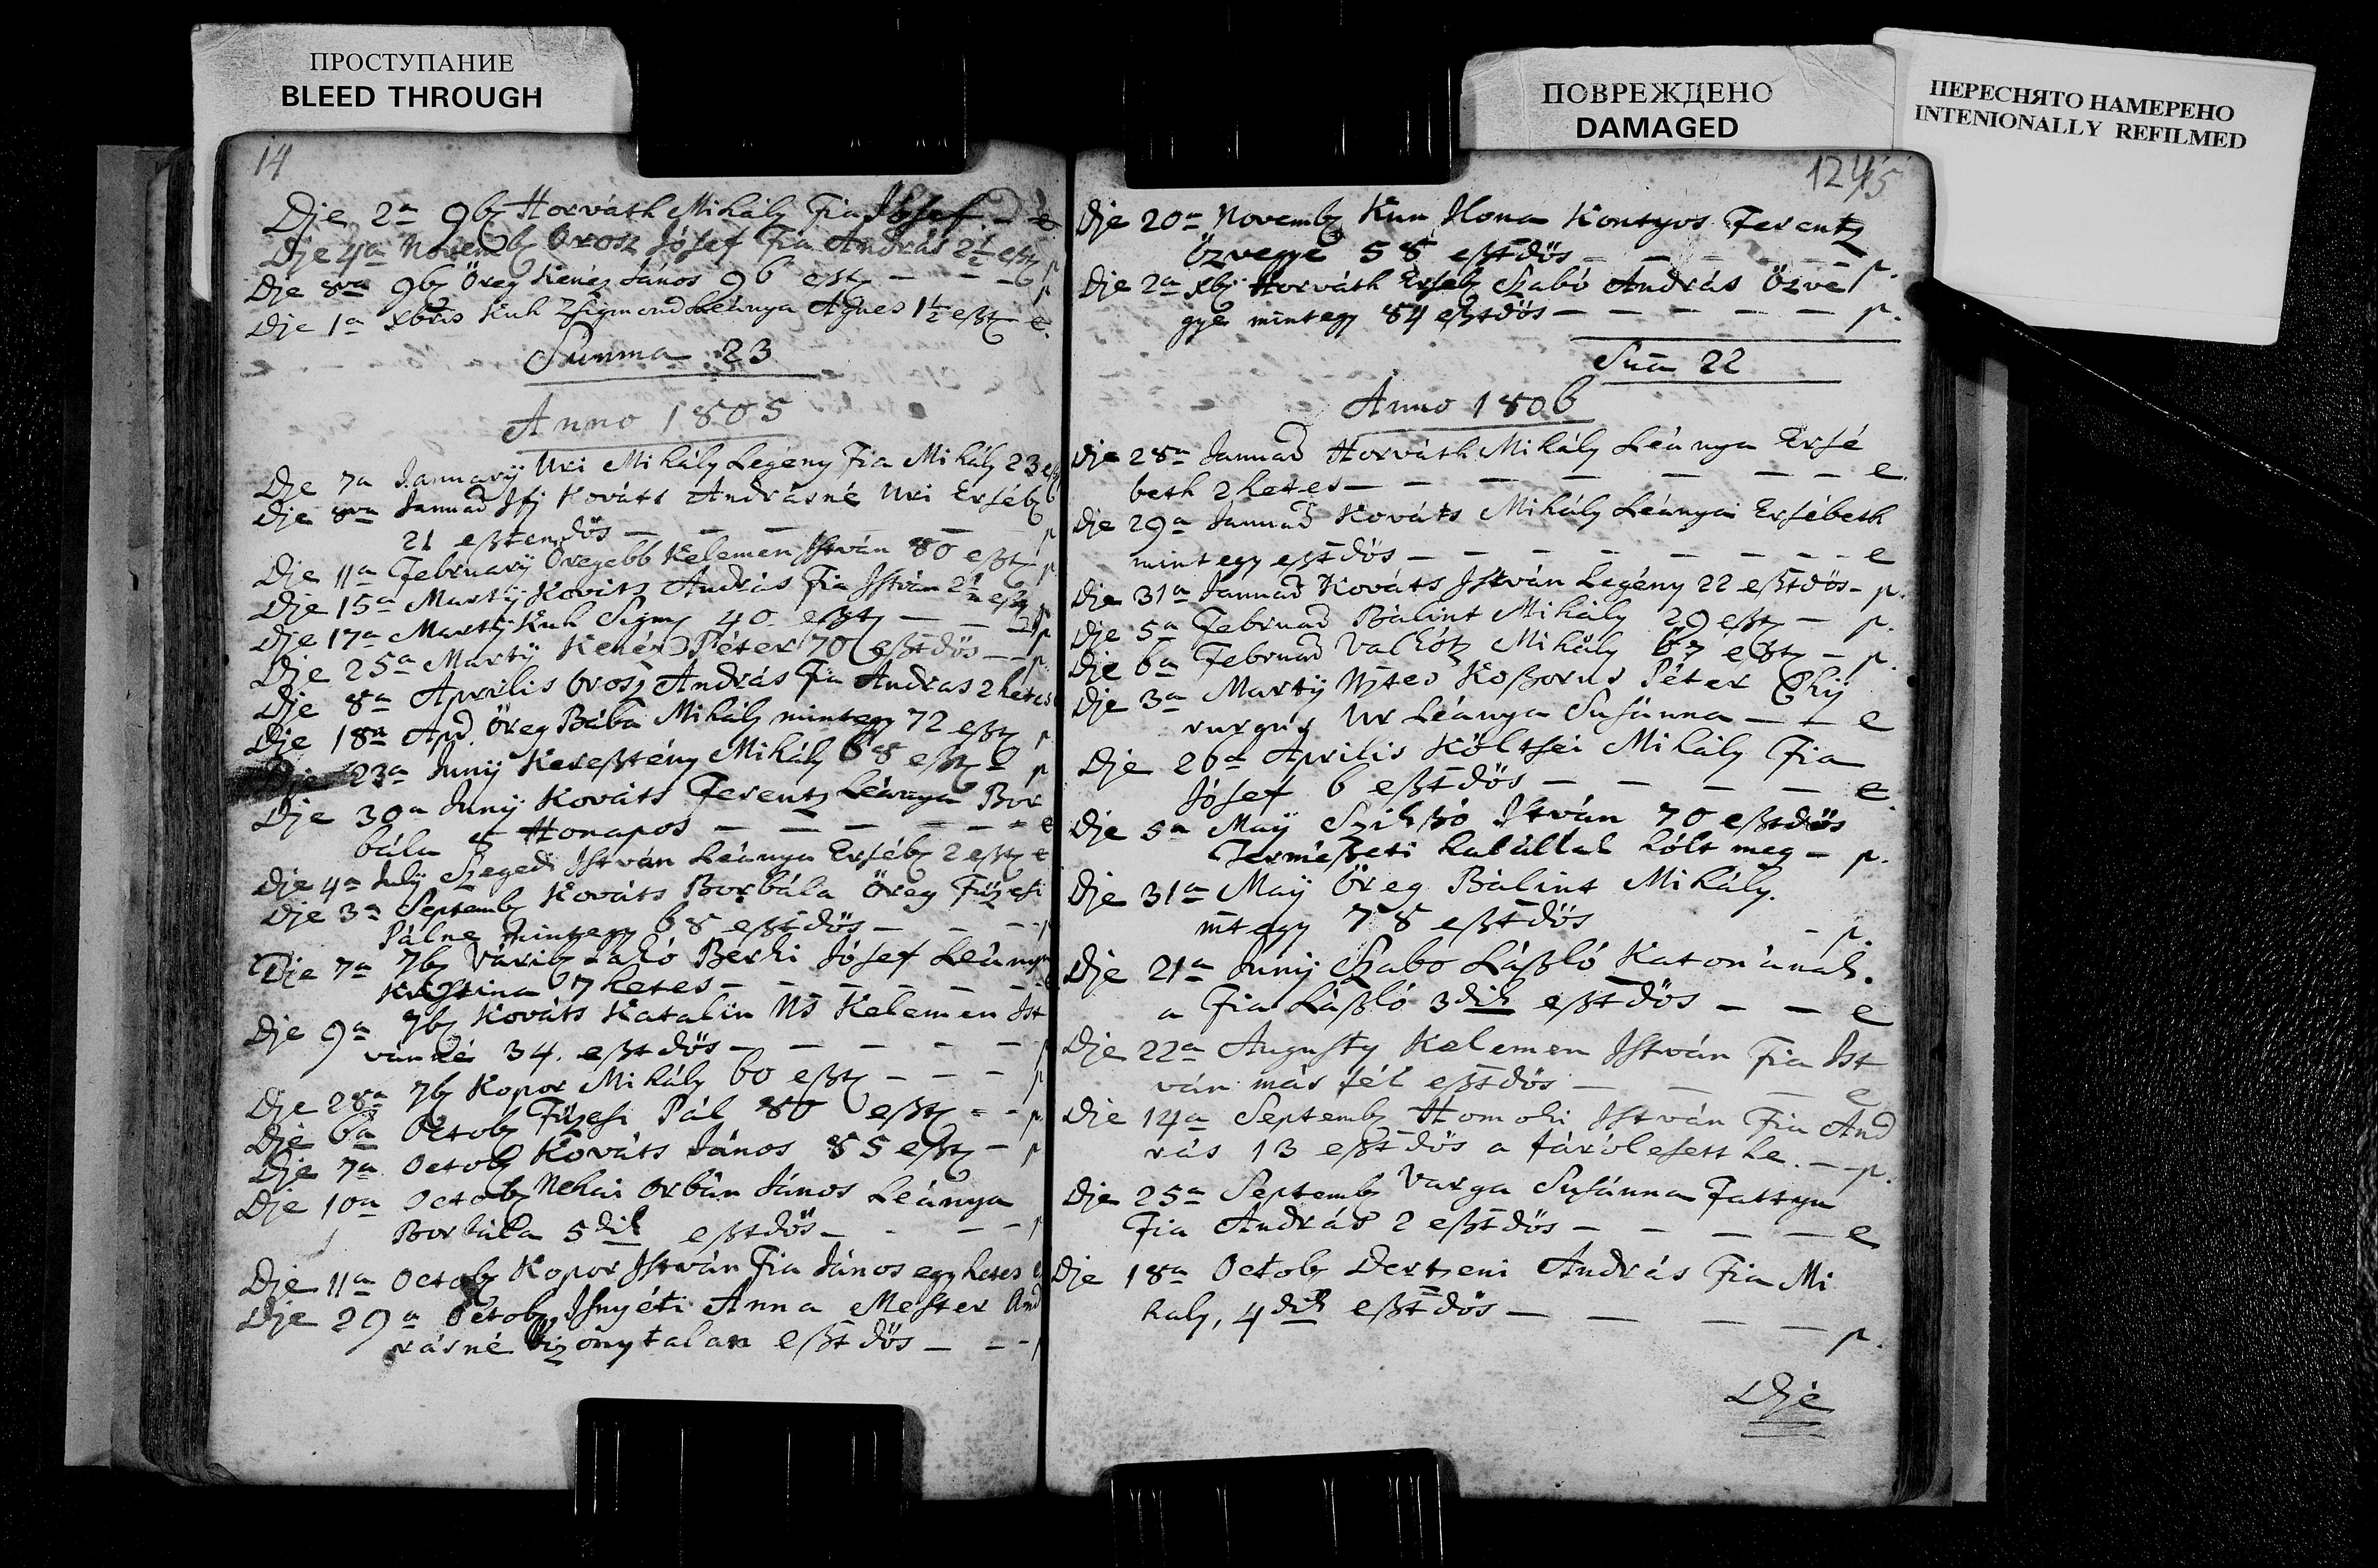 ПРОСТУПАНИЕ
BLEED THROUGH
ПОВРЕЖДЕНО
DAMAGED
ПЕРЕСНЯТО НАМЕРЕНО
INTENIONALLY REFILMED
14
Dje 2a 9bȝ Horváth Mihály Fia Jósef – e
Dje 4a Novembȝ Orosz Jósef Fia András 2½ eßtȝ p
Dje 8va 9bȝ Öreg Kenéz János 96 eßtȝ – – p
Dje 1a Xbris Kuh Zsigmond Leánya Agnes 1½ eßtȝ e.
Summa 23
Anno 1805
Dje 7a Januarÿ Uri Mihály Legény Fia Mihály 23 eßt
Dje 8va Januad Ifj Kováts Andrásné Uri Erséb
21 eßtendös – – – – p
Dje 11a Februarÿ Öregebb Kelemen István 80 eßtȝ p
Dje 15a Martÿ Kováts András Fia István 2½ eßtȝ p
Dje 17a Martÿ Kuh Sigm 40 eßtȝ – – p
Dje 25a Martÿ Kenéz Péter 70 eßtdös – – p.
Dje 8a Aprilis Orosz András Fia Andras 2 hetes
Dje 18a Apd. Öreg Bába Mihály mintegy 72 eßtȝ p
Dje 23a Junÿ Kereßtény Mihály 68 eßtȝ – p
Dje 30a Junÿ Kováts Ferentz Leánya Bor
bála 5 Honapos – – – – – e
Dje 4a Julÿ Szegedi István Leánya Ersébȝ 2 eßtȝ e
Dje 3a Septembȝ Kováts Borbála Öreg Füzesi
Pálne mintegy 68 eßtdös – – – p
Dje 7a 7bȝ Lakó Berki Jósef Leánya
Kristina 7 hetes – – – – –
Dje 9a 7bȝ Kováts Katalin Ns Kelemen Ist
vánné 34. eßtdös – – – – –
Dje 28a 7bȝ Kopor Mihály 60 eßtȝ – – – p
Dje 6a Octobȝ Füzesi Pál 80 eßtȝ – – p
Dje 7a Octobȝ Kováts János 85 eßtȝ – p
Dje 10a Octobȝ Nehai Orbán János Leánya
Borbála 5dik eßtdös – – – – p
Dje 11a Octobȝ Kopor István Fia János egy hetes e
Dje 29a Octobȝ Isnyéti Anna Mester And
rásné bizonytalan eßtdös – – – p
Dje 20a Novembȝ Kun Ilona Kontyos Ferentz
Özvegye 58 eßtdös – – – – – p.
Dje 2a Xbȝ Horváth Ersebȝ Szabó András Özve
gye mintegy 84 eßtdös – – – – – p.
Suma 22
Anno 1806
Dje 28a Januad Horváth Mihály Leánya Ersé
beth 2 hetes – – – – – – – e.
Dje 29a Januad Kováts Mihály Leánya Ersébeth
mintegy eßtdös – – – – – – – e
Dje 31a Januad Kováts István Legény 22 eßtdös – p.
Dje 5a Februad Bálint Mihály 29 eßtȝ – p.
Dje 6a Februad Valkótz Mihály 67 eßtȝ – p.
Dje 3a Martÿ Koßorus Péter Chÿ
rurgus Ur Leánya Susánna – – e
Dje 26a Aprilis Költsei Mihály Fia
Jósef 6 eßtdös – – – – – e.
Dje 5a Maÿ Szikßó István 70 eßtdös
Terméßeti halállal hólt meg – p.
Dje 31a Maÿ Öreg Bálint Mihály.
mtegy 78 eßtdös – p.
Dje 21a Junÿ Szabo Láßló Katonának.
a Fia Láßló 3dik eßtdös – – e
Dje 22a Augusty Kelemen István Fia Ist
ván más fél eßtdös – – – e
Dje 14a Septembȝ Homoki István Fia And
rás 13 eßtdös a fáról esett le. – p.
Dje 25a Septembȝ Varga Susánna Fattyu
Fia András 2 eßtdös – – – – e
Dje 18a Octobȝ Dertzeni András Fia Mi
haly, 4dik eßtdös – – – – p.
Dje